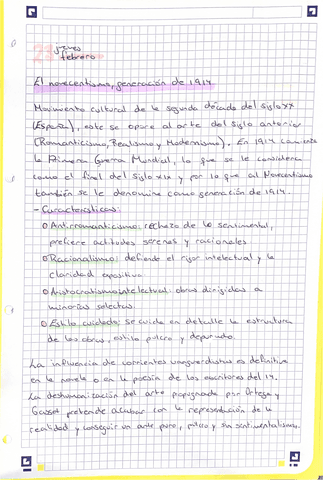 jueves
febrero
El novecentismo, generación de 1914.
Movimiento cultural de la segunda década del siglo XX
(España), este se opone al arte del siglo anterior
(Romanticismo, Realismo y Modernismo). En 1914 comienza
la Primera Guerra Mundial, lo que se le considera
como el final del siglo XIX y por lo que al Novecentismo
también se le denomina como generación de 1914.
- Características:
Antirromanticismo: rechazo de lo sentimental,
prefiere actitudes serenas y racionales
Racionalismo: defiende el rigor intelectual y la
claridad expositiva.
Aristocratismo intelectual: obras dirigidas a
minorías selectas.
Estilo cuidado: se cuida en detalle la estructura
de las obras, estilo pulcro y depurado.
La influencia de corrientes vanguardistas es definitiva
en la novela o en la poesía de los escritores del 14.
La deshumanización del arte propugnada por Ortega y
Gasset pretende acabar con la representación de la
realidad y conseguir un arte puro, pulcro y sin sentimentalismos.